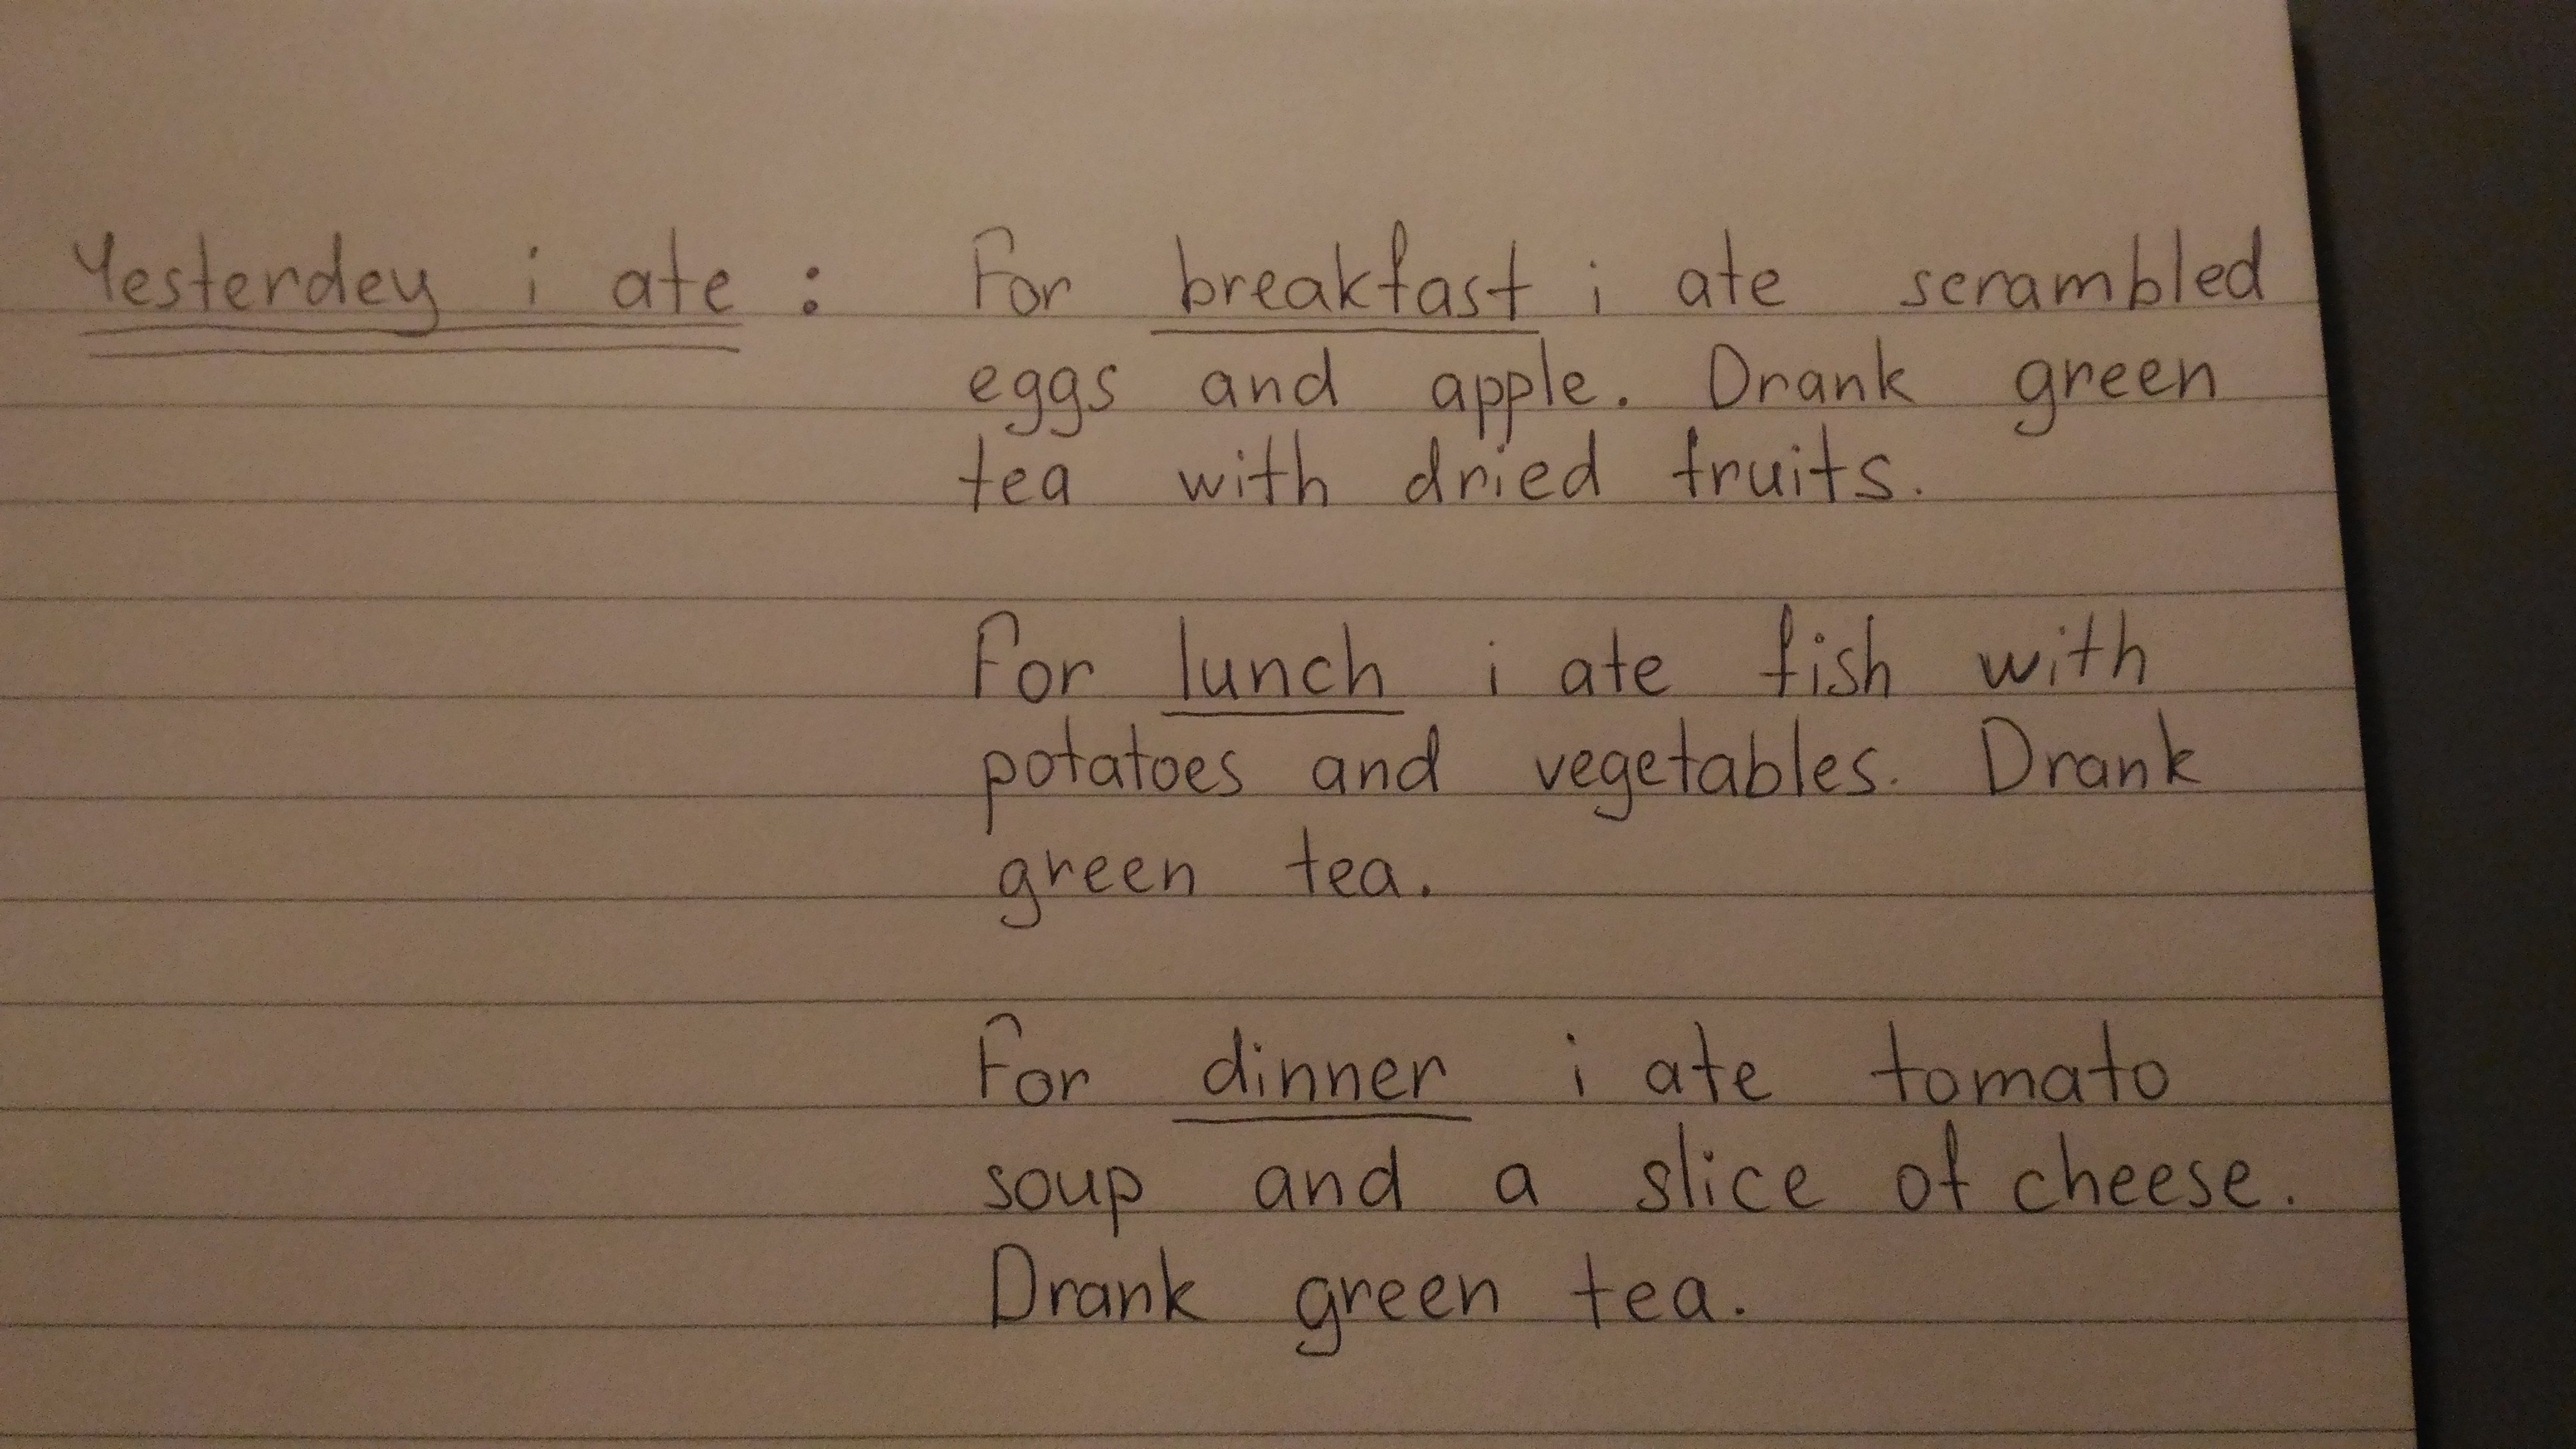 Yesterdey i ate : For breakfast i ate scrambled
eggs and apple. Drank green
tea with dried fruits.
For lunch i ate fish with
potatoes and vegetables. Drank
green tea.
For dinner i ate tomato
soup and a slice of cheese.
Drank green tea.